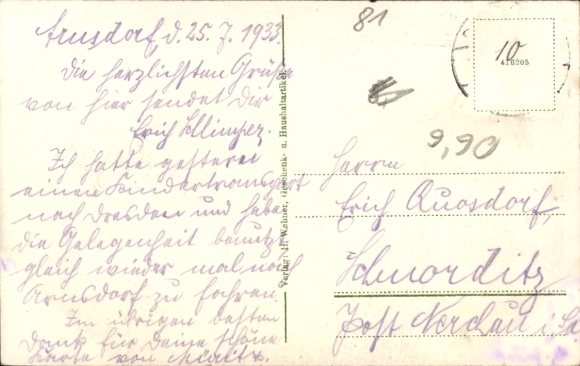 Arnsdorf d. 25. 7. 1933.
Die herzlichsten Grüße
von hier sendet Dir
Erich
Ich hatte gestern
einen Kindertransport
nach Dresden und habe
die Gelegenheit benutzt
gleich wieder mal nach
Arnsdorf zu fahren.
Im übrigen besten
Dank für Deine schöne
Karte von
Verlag: H. Wehner, Geschenk- u. Haushaltartikel
81
10
418205
9,90
Herrn
Erich Quosdorf
Schmorditz
Post Nerchau i. Sa.